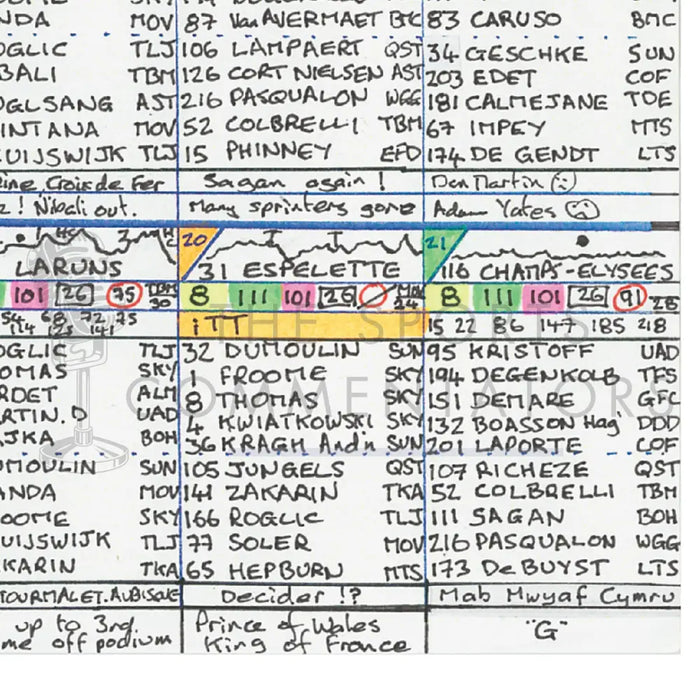 NDA MOV 87 Van AVERMAET BMC 83 CARUSO BMC
OGLIC TLJ 106 LAMPAERT QST 34 GESCHKE SUN
BALI TBM 126 CORT NIELSEN AST 203 EDET COF
OGLSANG AST 216 PASQUALON WGG 181 CALMEJANE TDE
INTANA MOV 52 COLBRELLI TBM 67 IMPEY MTS
UIJSWIJK TLJ 15 PHINNEY EFD 174 DE GENDT LTS
Croix de Fer Sagan again! Dan Martin
! Nibali out. Many sprinters gone Adam Yates
20 21
LARUNS 31 ESPELETTE 116 CHAMPS-ELYSEES
101 26 75 TBM 30 8 111 101 26 8 111 101 26 91 28
54 68 72 75 iTT 15 22 86 147 185 218
114 125 141
THE SPORTS COMMENTATORS
OGLIC TLJ 32 DUMOULIN SUN 95 KRISTOFF UAD
OMAS SKY 1 FROOME SKY 194 DEGENKOLB TFS
RDET ALM 8 THOMAS SKY 151 DEMARE GFC
RTIN.D UAD 4 KWIATKOWSKI SKY 132 BOASSON Hag DDD
JKA BOH 36 KRAGH And'n SUN 201 LAPORTE COF
UMOULIN SUN 105 JUNGELS QST 107 RICHEZE QST
ANDA MOV 141 ZAKARIN TKA 52 COLBRELLI TBM
OOME SKY 166 ROGLIC TLJ 111 SAGAN BOH
UIJSWIJK TLJ 77 SOLER MOV 216 PASQUALON WGG
KARIN TKA 65 HEPBURN MTS 173 De BUYST LTS
TOURMALET. AUBISQUE Decider !? Mab Mwyaf Cymru
up to 3rd Prince of Wales "G"
me off podium King of France